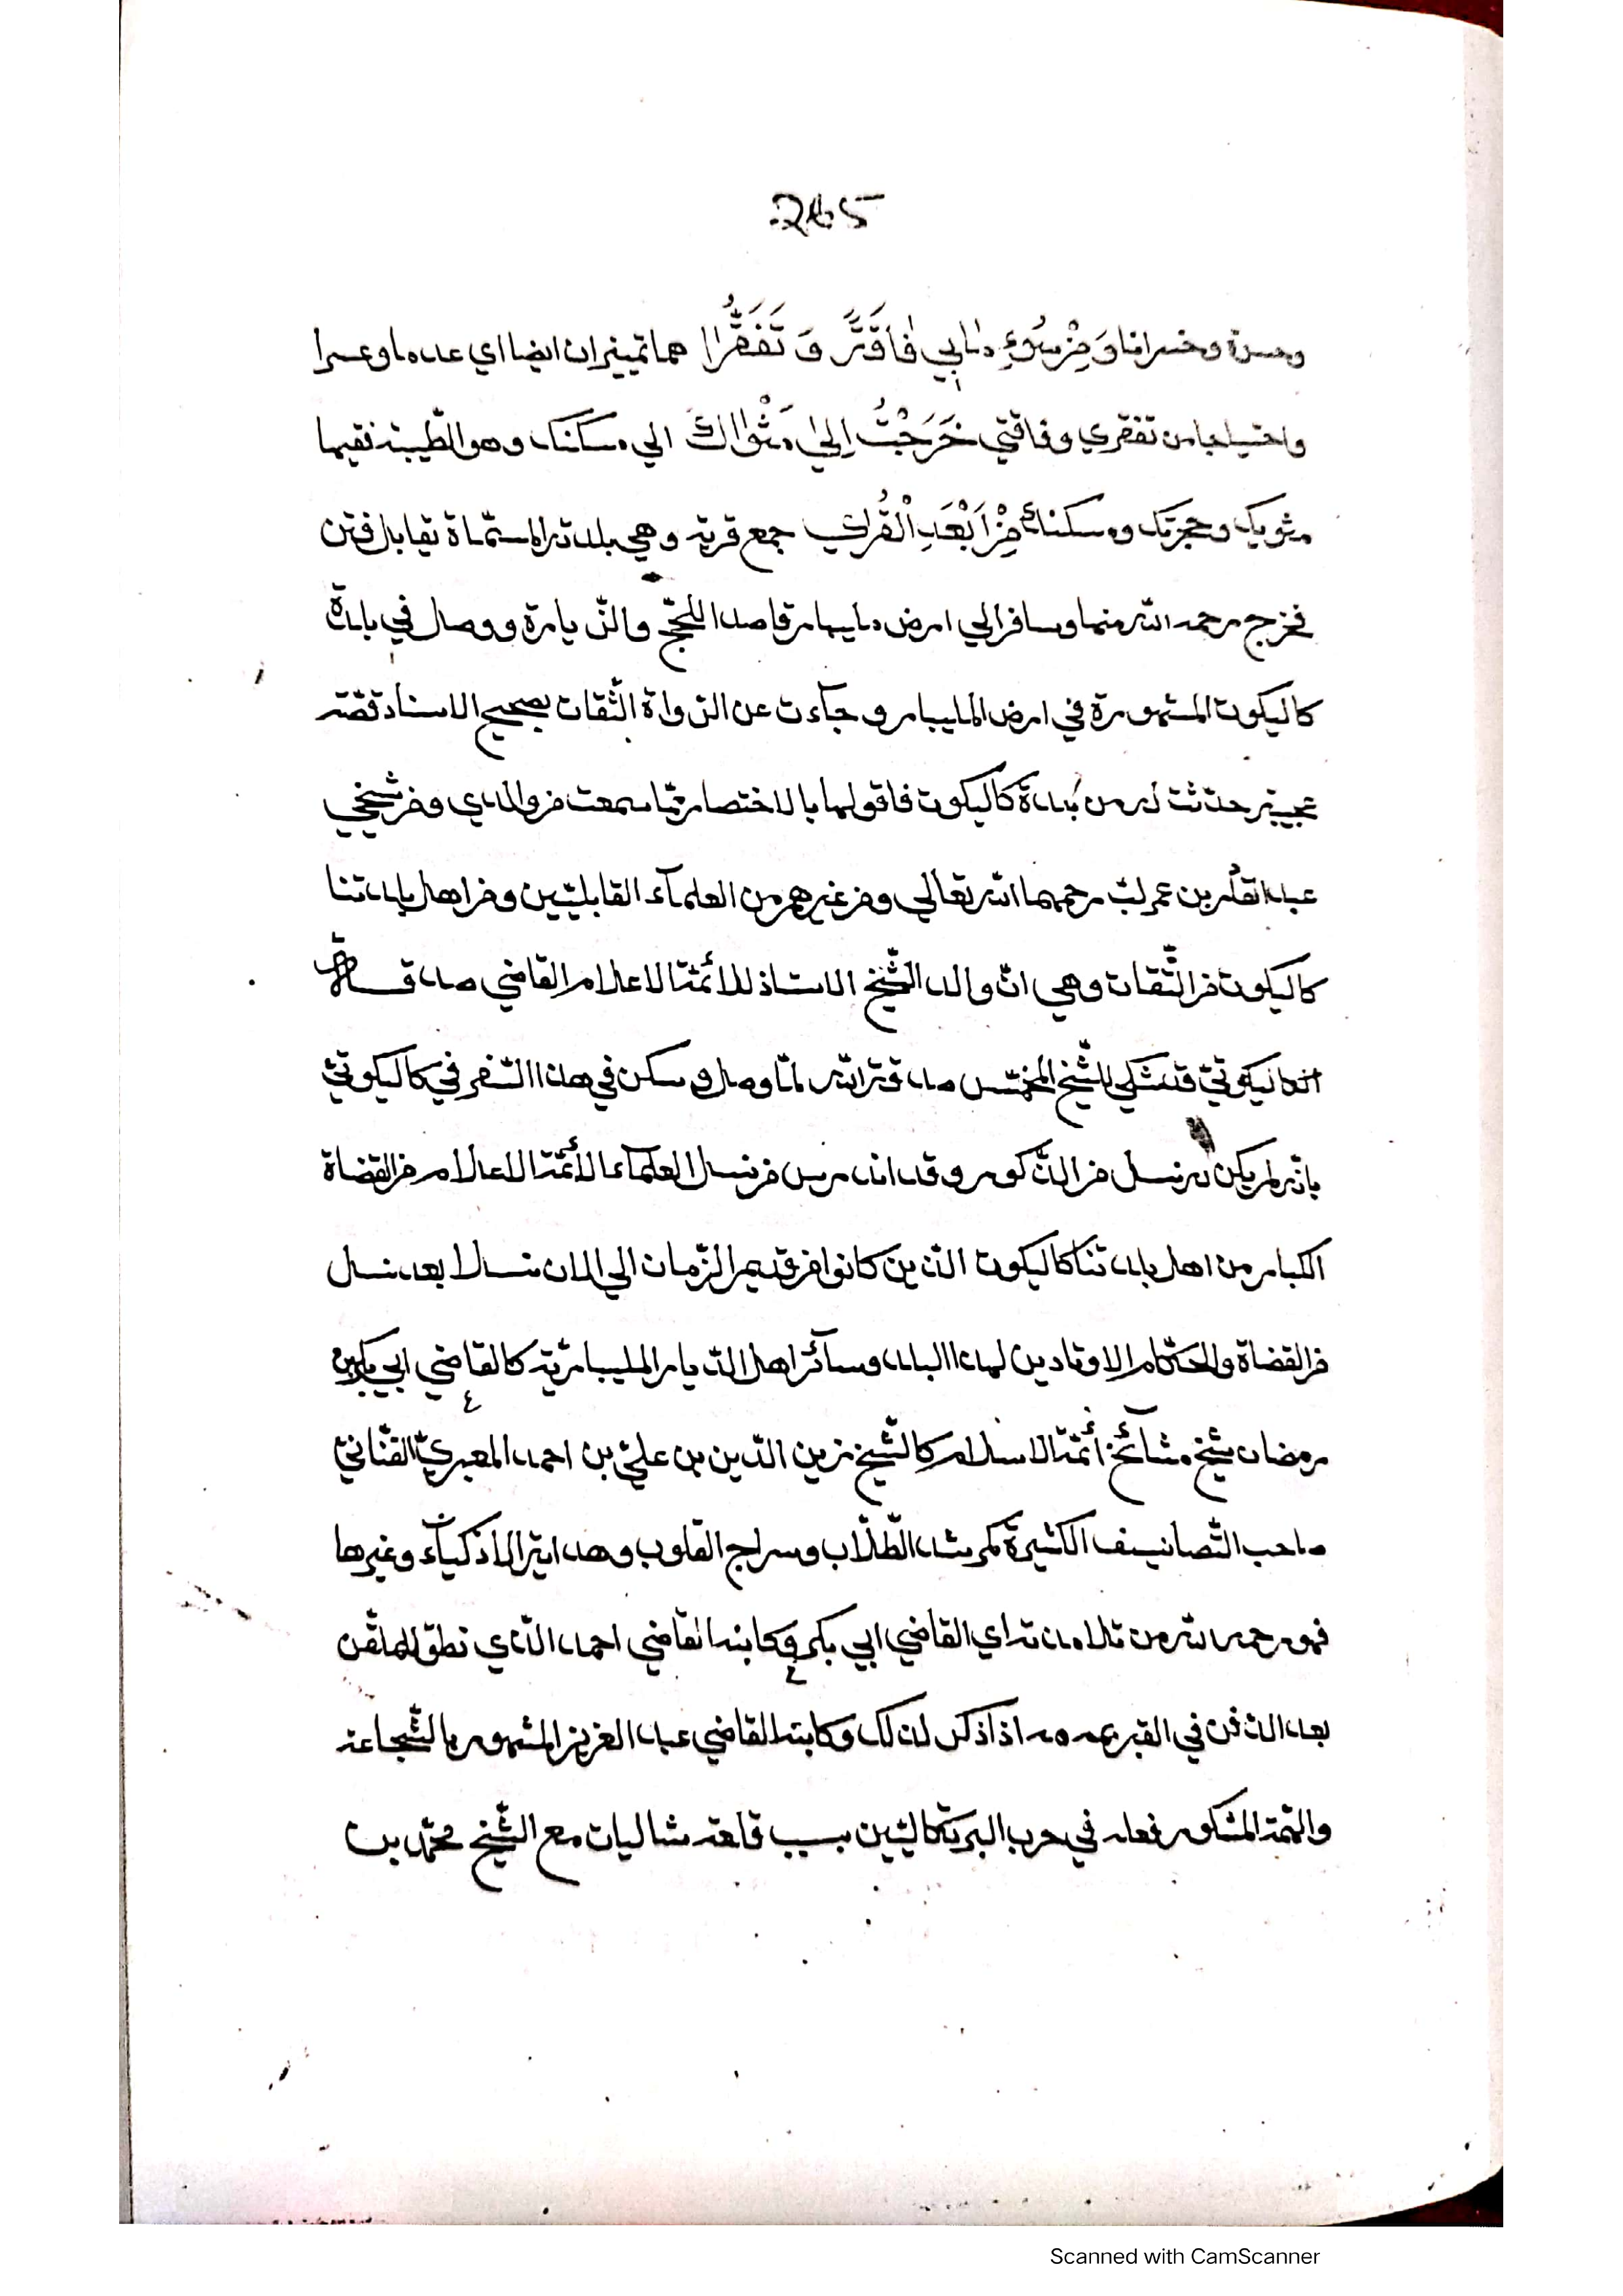 265
وحسرة وخسرانا وَمِنْ سُوْءِ دَابِي فَاقَتًا وَ تَفَقُّرًا هما تميزان ايضا اي عدما وعسرا
واحتياجا من تفقري وفاقتي خَرَجْتُ اِلىٰ مَثْوَاكَ الي مسكنك وهو الطيبة نقيما
مثويك وحجرتك ومسكناك مِنْ اَبْعَدِ الْقُرٰي جمع قرية وهي بلدته المسماة بقابل فتن
فخرج رحمه الله منها وسافر الي ارض مليبار قاصدا للحجّ والزّيارة ووصل في بلدة
كاليكوت المشهورة في ارض المليبار وجآءت عن الرواة الثّقات بصحيح الاسناد قصّة
عجيبة حدثت له من بُلدة كاليكوت فاقولها بالاختصار ممّا سمعت من والدي ومن شيخي
عبد القادر بن عمر لبّ رحمهما الله تعالي ومن غيرهم من العلمآء القابليّين ومن اهل بلدتنا
كاليكوت من الثّقات وهي انّ والد الشّيخ الاستاذ للأئمّة الاعلام القاضي صدقة
الكاليكوتيّ قد شكي للشّيخ المخمّس صدقة الله لمّا وصل وسكن في هذا السّفر في كاليكوتيّ
بانّه لم يكن له نسل من الذّكور وقد اندرس من نسل العلمآء الأئمّة الاعلام من القضاة
الكبار من اهل بلدتنا كاليكوت الّذين كانوا من قديم الزّمان الي الان نسلا بعد نسل
من القضاة والحكّام الاوتادين لهذا البلد وسآئر اهل الديار المليباريّة كالقاضي ابي بكر بن
رمضان شيخ مشآئخ أئمّة الاسلام كالشّيخ زين الدّين بن عليّ بن احمد المعبريّ الفنّانيّ
صاحب التّصانيف الكثيرة كمرشد الطّلّاب وسراج القلوب وهداية الاذكيآء وغيرها
فهو رحمه الله من تلامذته اي القاضي ابي بكر وكابنه القاضي احمد الّذي نطق للملقّن
بعد الدفن في القبر اذا ذكر لذلك وكابنه القاضي عبد العزيز المشهور بالشّجاعة
والهمّة المشكور فعله في حرب البرتكاليّين بسبب قلعة شاليات مع الشّيخ محمّد بن
Scanned with CamScanner